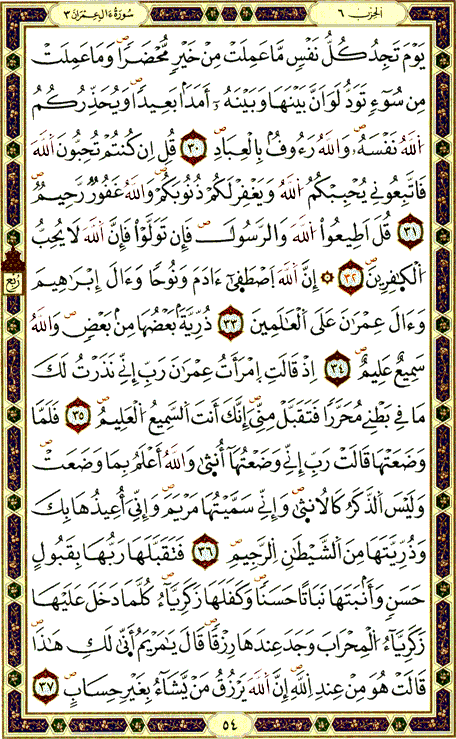 الحِزْب ٦
سُورَةُ ءَالِ عِمْرَٰنَ ٣
يَوْمَ تَجِدُ كُلُّ نَفْسٖ مَّا عَمِلَتْ مِنْ خَيْرٖ مُّحْضَراٗ وَمَا عَمِلَتْ
مِن سُوٓءٖ تَوَدُّ لَوَ اَنَّ بَيْنَهَا وَبَيْنَهُۥٓ أَمَداَۢ بَعِيداٗۖ وَيُحَذِّرُكُمُ
اُ۬للَّهُ نَفْسَهُۥۖ وَاللَّهُ رَءُوفُۢ بِالْعِبَادِۖ ٣٠ قُلِ اِن كُنتُمْ تُحِبُّونَ اَ۬للَّهَ
فَاتَّبِعُونِے يُحْبِبْكُمُ اُ۬للَّهُ وَيَغْفِرْ لَكُمْ ذُنُوبَكُمْۖ وَاللَّهُ غَفُورٞ رَّحِيمٞۖ
٣١ قُلَ اَطِيعُوا۟ اُ۬للَّهَ وَالرَّسُولَۖ فَإِن تَوَلَّوْا۟ فَإِنَّ اَ۬للَّهَ لَا يُحِبُّ
اُ۬لْكٰ۪فِرِينَۖ ٣٢ ۞ إِنَّ اَ۬للَّهَ اَ۪صْطَف۪ىٰٓ ءَادَمَ وَنُوحاٗ وَءَالَ إِبْرَٰهِيمَ
وَءَالَ عِمْرَٰنَ عَلَى اَ۬لْعَٰلَمِينَ ٣٣ ذُرِّيَّةَۢ بَعْضُهَا مِنۢ بَعْضٖۖ وَاللَّهُ
سَمِيعٌ عَلِيمٌۖ ٣٤ اِذْ قَالَتِ اِ۪مْرَأَتُ عِمْرَٰنَ رَبِّ إِنِّے نَذَرْتُ لَكَ
مَا فِے بَطْنِے مُحَرَّراٗ فَتَقَبَّلْ مِنِّيَۖ إِنَّكَ أَنتَ اَ۬لسَّمِيعُ اُ۬لْعَلِيمُۖ ٣٥ فَلَمَّا
وَضَعَتْهَا قَالَتْ رَبِّ إِنِّے وَضَعْتُهَآ أُنث۪ىٰۖ وَاللَّهُ أَعْلَمُ بِمَا وَضَعَتْۖ
وَلَيْسَ اَ۬لذَّكَرُ كَالُانث۪ىٰۖ وَإِنِّے سَمَّيْتُهَا مَرْيَمَۖ وَإِنِّيَ أُعِيذُهَا بِكَ
وَذُرِّيَّتَهَا مِنَ اَ۬لشَّيْطَٰنِ اِ۬لرَّجِيمِۖ ٣٦ فَتَقَبَّلَهَا رَبُّهَا بِقَبُولٍ
حَسَنٖ وَأَنۢبَتَهَا نَبَاتاً حَسَناٗۖ وَكَفَلَهَا زَكَرِيَّآءُۖ كُلَّمَا دَخَلَ عَلَيْهَا
زَكَرِيَّآءُ اُ۬لْمِحْرَابَ وَجَدَ عِندَهَا رِزْقاٗۖ قَالَ يَٰمَرْيَمُ أَنّ۪ىٰ لَكِ هَٰذَاۖ
قَالَتْ هُوَ مِنْ عِندِ اِ۬للَّهِۖ إِنَّ اَ۬للَّهَ يَرْزُقُ مَنْ يَّشَآءُ بِغَيْرِ حِسَابٍۖ ٣٧
رُبُع
٥٤